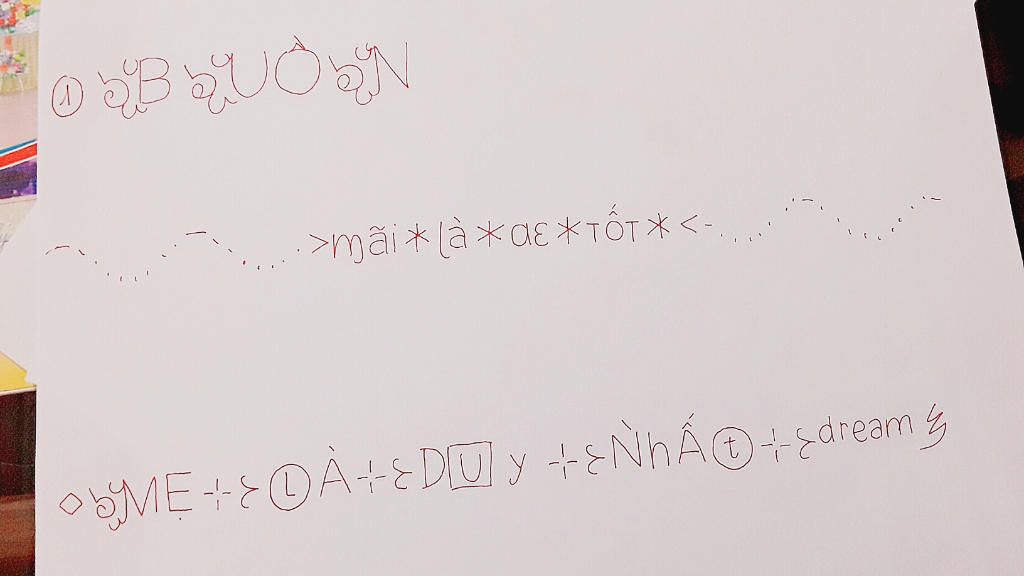 ① ঔৣBঔৣUÒঔৣN
>mãi*là*aε*TỐT*<
◇ঔৣMẸ⊹⊱ⓁÀ⊹⊱D🅄y⊹⊱ǸhẤⓣ⊹⊱dream彡